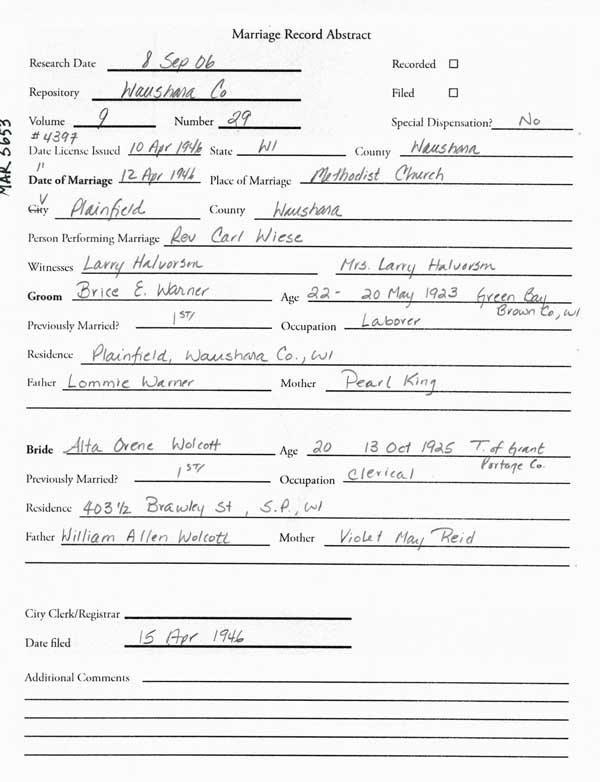 Marriage Record Abstract
Research Date 8 Sep 06 Recorded ☐
Repository Waushara Co Filed ☐
Volume 9 Number 29 Special Dispensation? No
MAR 5653
# 4397
Date License Issued 10 Apr 1946 State WI County Waushara
"
Date of Marriage 12 Apr 1946 Place of Marriage Methodist Church
V
City Plainfield County Waushara
Person Performing Marriage Rev Carl Wiese
Witnesses Larry Halvorsm Mrs. Larry Halvorsm
Groom Brice E. Warner Age 22 - 20 May 1923 Green Bay
Brown Co, WI
Previously Married? 1st/ Occupation Laborer
Residence Plainfield, Waushara Co., WI
Father Lommie Warner Mother Pearl King
Bride Alta Orene Wolcott Age 20 13 Oct 1925 T. of Grant
Portage Co.
Previously Married? 1st/ Occupation Clerical
Residence 403 1/2 Brawley St, S.P., WI
Father William Allen Wolcott Mother Violet May Reid
City Clerk/Registrar
Date filed 15 Apr 1946
Additional Comments